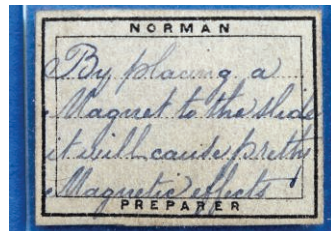 NORMAN
By placing a
Magnet to the slide
it will cause pretty
Magnetic effects
PREPARER